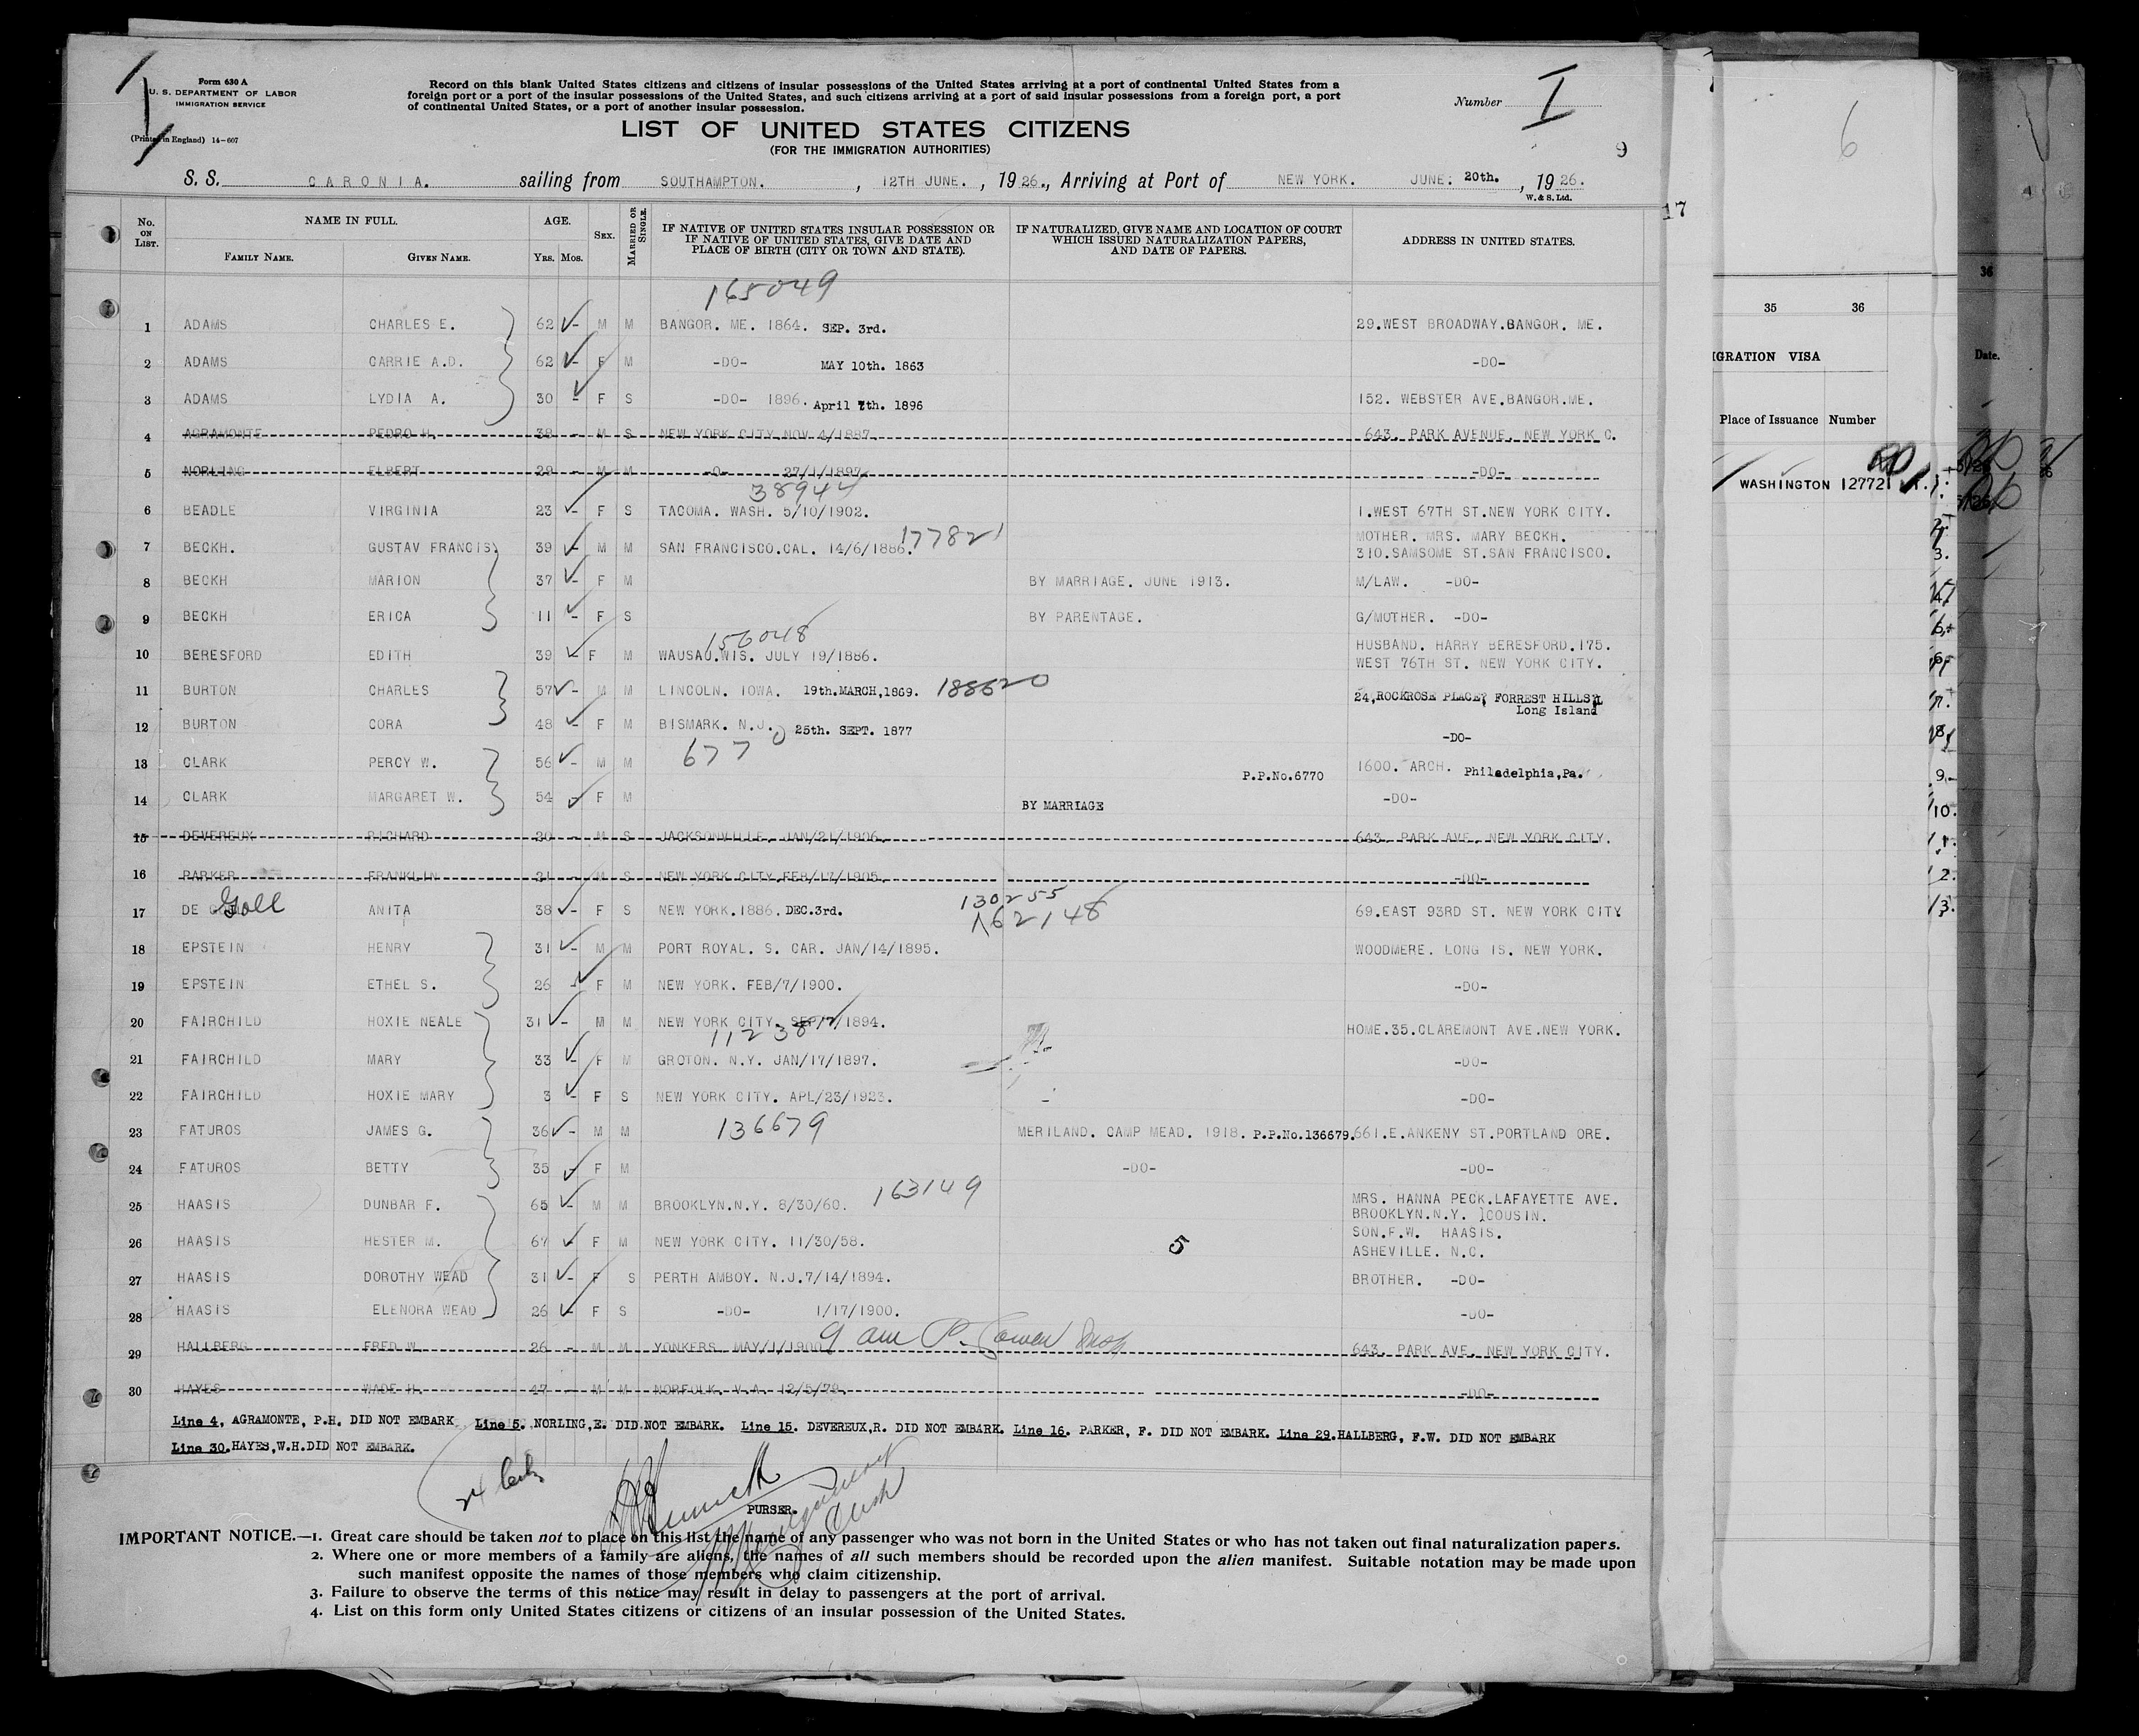 Form 630 A
U. S. DEPARTMENT OF LABOR
IMMIGRATION SERVICE
(Printed in England) 14-607
Record on this blank United States citizens and citizens of insular possessions of the United States arriving at a port of continental United States from a
foreign port or a port of the insular possessions of the United States, and such citizens arriving at a port of said insular possessions from a foreign port, a port
of continental United States, or a port of another insular possession.
Number I
LIST OF UNITED STATES CITIZENS
(FOR THE IMMIGRATION AUTHORITIES)
9
S. S. CARONIA. sailing from SOUTHAMPTON. , 12TH JUNE. , 1926., Arriving at Port of NEW YORK. JUNE. 20th. , 1926.
W. & S. Ltd.
No. ON LIST. NAME IN FULL. AGE. SEX. MARRIED OR SINGLE. IF NATIVE OF UNITED STATES INSULAR POSSESSION OR IF NATIVE OF UNITED STATES, GIVE DATE AND PLACE OF BIRTH (CITY OR TOWN AND STATE). IF NATURALIZED, GIVE NAME AND LOCATION OF COURT WHICH ISSUED NATURALIZATION PAPERS, AND DATE OF PAPERS. ADDRESS IN UNITED STATES.
FAMILY NAME. GIVEN NAME. YRS. MOS.
165049
1 ADAMS CHARLES E. 62 - M M BANGOR. ME. 1864. SEP. 3rd. 29.WEST BROADWAY.BANGOR. ME.
2 ADAMS CARRIE A.D. 62 - F M -DO- MAY 10th. 1863 -DO-
3 ADAMS LYDIA A. 30 - F S -DO- 1896. April 7th. 1896 152. WEBSTER AVE.BANGOR.ME.
4 AGRAMONTE PEDRO H. 38 - M S NEW YORK CITY NOV 4/1887. 643. PARK AVENUE. NEW YORK C.
5 NORLING ELBERT 29 - M M -O- 27/1/1897. -DO-
38944
6 BEADLE VIRGINIA 23 - F S TACOMA. WASH. 5/10/1902. 1.WEST 67TH ST.NEW YORK CITY.
7 BECKH. GUSTAV FRANCIS 39 - M M SAN FRANCISCO.CAL. 14/6/1886. 177821 MOTHER. MRS. MARY BECKH.
310.SAMSOME ST.SAN FRANCISCO.
8 BECKH MARION 37 - F M BY MARRIAGE. JUNE 1913. M/LAW. -DO-
9 BECKH ERICA 11 - F S BY PARENTAGE. G/MOTHER. -DO-
156048
10 BERESFORD EDITH 39 - F M WAUSAU.WIS. JULY 19/1886. HUSBAND. HARRY BERESFORD.175.
WEST 76TH ST. NEW YORK CITY.
11 BURTON CHARLES 57 - M M LINCOLN. IOWA. 19th.MARCH,1869. 188620 24,ROCKROSE PLACE, FORREST HILLS,
Long Island
12 BURTON CORA 48 - F M BISMARK. N.J. D 25th. SEPT. 1877 -DO-
6770
13 CLARK PERCY W. 56 - M M P.P.No.6770 1600. ARCH. Philadelphia,Pa.
14 CLARK MARGARET W. 54 - F M BY MARRIAGE -DO-
15 DEVEREUX RICHARD 20 - M S JACKSONVILLE. JAN/21/1906. 643. PARK AVE. NEW YORK CITY.
16 PARKER FRANKLIN 21 - M S NEW YORK CITY.FEB/17/1905. -DO-
130255
17 DE Goll ANITA 38 - F S NEW YORK.1886. DEC.3rd. 162148 69.EAST 93RD ST. NEW YORK CITY
18 EPSTEIN HENRY 31 - M M PORT ROYAL. S. CAR. JAN/14/1895. WOODMERE. LONG IS. NEW YORK.
19 EPSTEIN ETHEL S. 26 - F M NEW YORK. FEB/7/1900. -DO-
20 FAIRCHILD HOXIE NEALE 31 - M M NEW YORK CITY. SEP/7/1894. HOME.35.CLAREMONT AVE.NEW YORK.
11238
21 FAIRCHILD MARY 33 - F M GROTON. N.Y. JAN/17/1897. -DO-
22 FAIRCHILD HOXIE MARY 3 - F S NEW YORK CITY. APL/23/1923. -DO-
23 FATUROS JAMES G. 36 - M M 136679 MERILAND. CAMP MEAD. 1918. P.P.No.136679. 661.E.ANKENY ST.PORTLAND ORE.
24 FATUROS BETTY 35 - F M -DO- -DO-
25 HAASIS DUNBAR F. 65 - M M BROOKLYN.N.Y. 8/30/60. 163149 MRS. HANNA PECK.LAFAYETTE AVE.
BROOKLYN.N.Y. COUSIN.
26 HAASIS HESTER M. 67 - F M NEW YORK CITY. 11/30/58. 5 SON.F.W. HAASIS.
ASHEVILLE. N.C.
27 HAASIS DOROTHY WEAD 31 - F S PERTH AMBOY. N.J.7/14/1894. BROTHER. -DO-
28 HAASIS ELENORA WEAD 26 - F S -DO- 1/17/1900. -DO-
29 HALLBERG FRED W. 26 - M M YONKERS. MAY/1/1900 9 am P. 643. PARK AVE. NEW YORK CITY.
30 HAYES WADE H. 47 - M M NORFOLK. V.A. 12/5/79. -DO-
Line 4, AGRAMONTE, P.H. DID NOT EMBARK Line 5. NORLING,E. DID NOT EMBARK. Line 15. DEVEREUX,R. DID NOT EMBARK. Line 16. PARKER, F. DID NOT EMBARK. Line 29.HALLBERG, F.W. DID NOT EMBARK
Line 30.HAYES,W.H.DID NOT EMBARK.
PURSER.
IMPORTANT NOTICE.—1. Great care should be taken not to place on this list the name of any passenger who was not born in the United States or who has not taken out final naturalization papers.
2. Where one or more members of a family are aliens, the names of all such members should be recorded upon the alien manifest. Suitable notation may be made upon
such manifest opposite the names of those members who claim citizenship.
3. Failure to observe the terms of this notice may result in delay to passengers at the port of arrival.
4. List on this form only United States citizens or citizens of an insular possession of the United States.
17
6
35 36
IGRATION VISA
Place of Issuance Number
WASHINGTON 127721
3.
8
9
10.
36
Date.